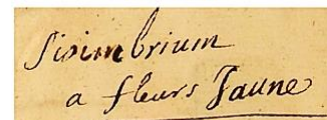 Sisimbrium
a fleurs Jaune